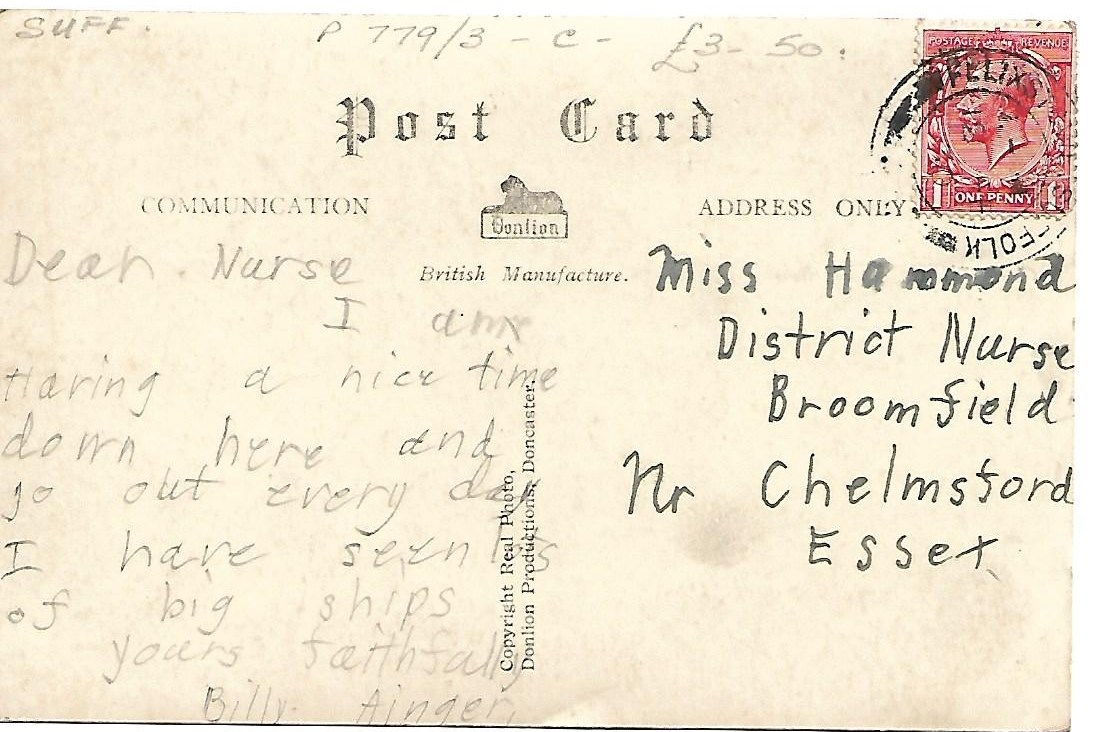 SUFF.
P 779/3 - C - £3-50.
Post Card
POSTAGE REVENUE
1 ONE PENNY 1
FELIXST
FOLK
COMMUNICATION
Donlion
ADDRESS ONLY
British Manufacture.
Dear Nurse
I am
Having a nice time
down here and
go out every day
I have seen lots
of big ships
yours faithfully
Billy Ainger.
Copyright Real Photo,
Donlion Productions, Doncaster.
Miss Hammond
District Nurse
Broomfield
Nr Chelmsford
Essex